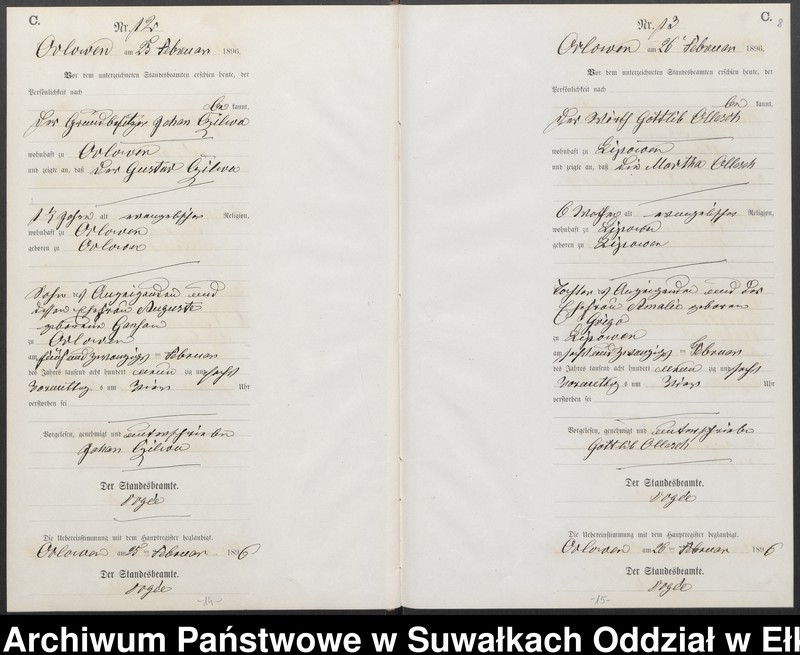 C.
Nr. 12
Orlowen am 25 Februar 1896.
Vor dem unterzeichneten Standesbeamten erschien heute, der
Persönlichkeit nach
be kannt,
der Grundbesitzer Johan Czilwa
wohnhaft zu Orlowen
und zeigte an, daß der Gustav Czilwa
Jahre alt evangelischer Religion,
wohnhaft zu Orlowen
geboren zu Orlowen
Sohn des Anzeigenden und
dessen Ehefrau Auguste
geborene
zu Orlowen
am fünf und zwanzigs ten Februar
des Jahres tausend acht hundert neun zig und sechs
Vormittag s um Uhr
verstorben sei
Vorgelesen, genehmigt und unterschrieben
Johan Czilwa
Der Standesbeamte.
Rogée
Die Uebereinstimmung mit dem Hauptregister beglaubigt.
Orlowen am 25 ten Februar 1896
Der Standesbeamte.
Rogée
-14-
C.
8
Nr. 13
Orlowen am 26 Februar 1896.
Vor dem unterzeichneten Standesbeamten erschien heute, der
Persönlichkeit nach
be kannt,
der Wirth Gottlib Ollesch
wohnhaft zu Lipowen
und zeigte an, daß die Martha Ollesch
6 Wochen alt evangelischer Religion,
wohnhaft zu Lipowen
geboren zu Lipowen
Tochter des Anzeigenden und der
Ehefrau Amalie geboren
Grego
zu Lipowen
am sechs und zwanzigs ten Februar
des Jahres tausend acht hundert neun zig und sechs
Vormittag s um Uhr
verstorben sei
Vorgelesen, genehmigt und unterschrieben
Gottlib Ollesch
Der Standesbeamte.
Rogée
Die Uebereinstimmung mit dem Hauptregister beglaubigt.
Orlowen am 26 ten Februar 1896
Der Standesbeamte.
Rogée
-15-
Archiwum Państwowe w Suwałkach Oddział w Ełk